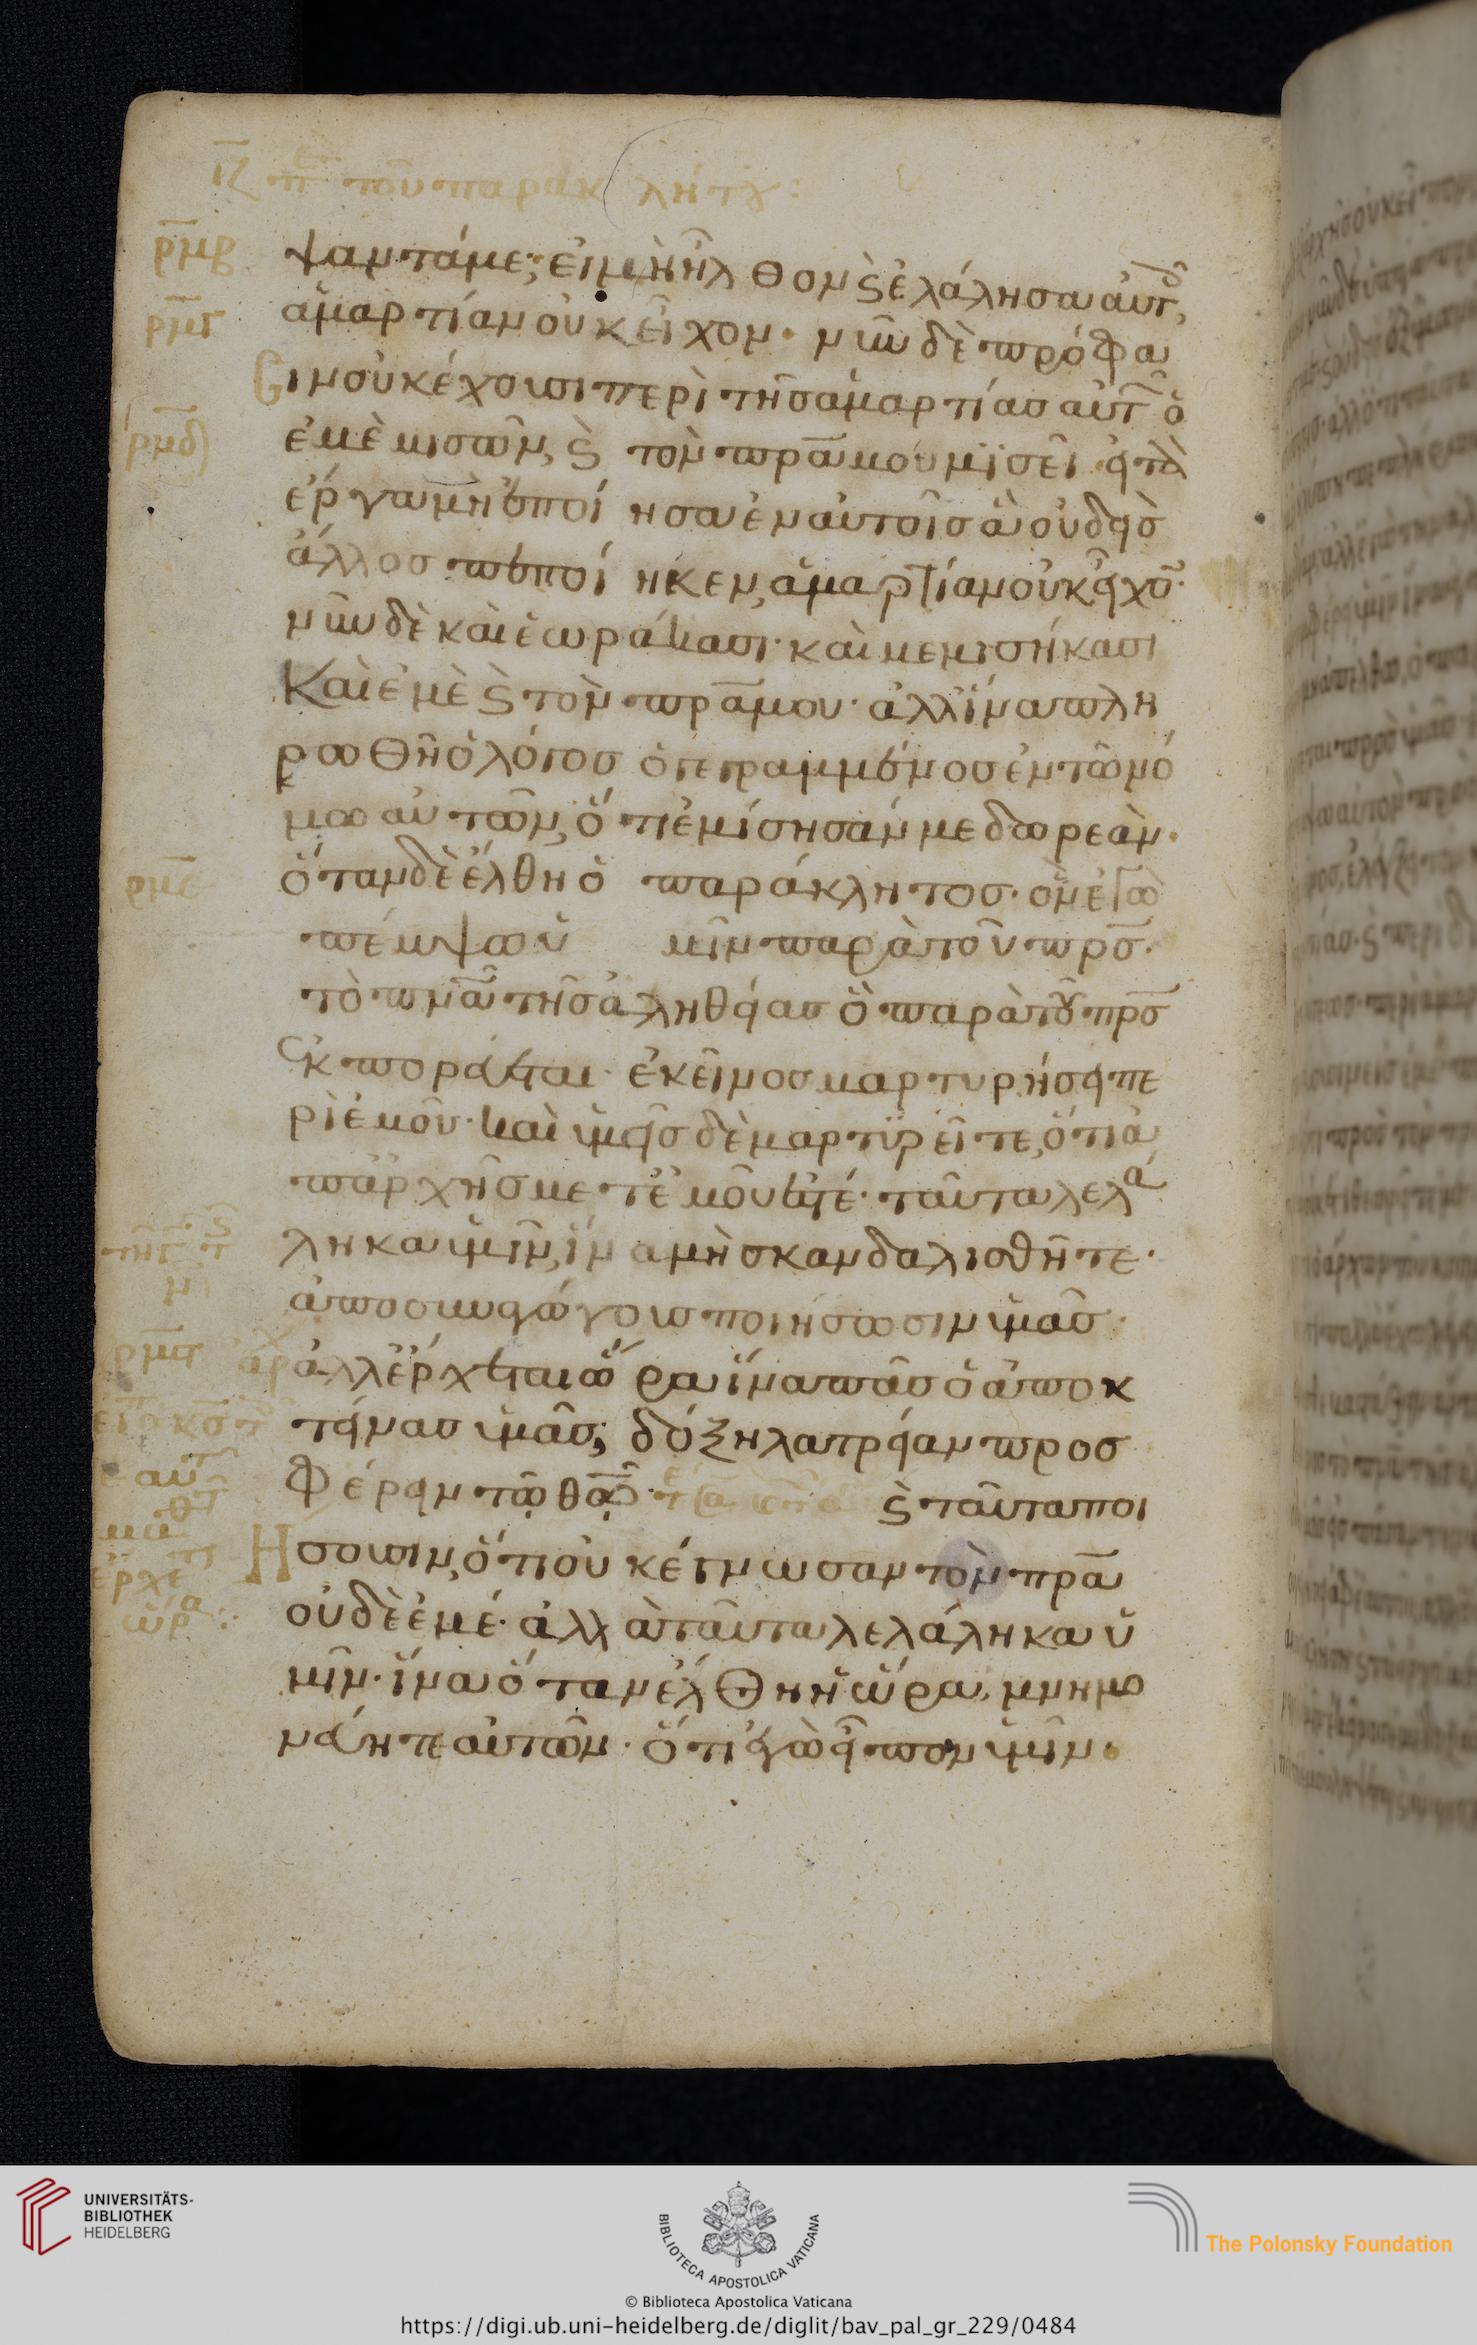 ιζ π̅ε τοῦ παρακλήτου:
ρ̅μ̅β̅ ψαντά με; εἰ μὴ ἦλθον ϛ ἐλάλησα αὐτ̅,
ρ̅μ̅γ̅ ἁμαρτίαν οὐκ εἶχον· νῦν δὲ πρόφα
σιν οὐκ ἔχουσι περὶ τῆς ἁμαρτίας αὐτῶ̅ ὁ
ρ̅μ̅δ̅ ἐμὲ μισῶν, ϛ τὸν πρ̅α μου μισεῖ εἰ τὰ
ἔργα μὴ ἐποίησα ἐν αὐτοῖς ἃ οὐδεὶς
ἄλλος πεποίηκεν, ἁμαρτίαν οὐκ εἶχο̅·
νῦν δὲ καὶ ἑωράκασι· καὶ μεμισήκασι
Καὶ ἐμὲ ϛ τὸν πρ̅α μου· ἀλλ' ἵνα πλη
ρωθῆ ὁ λόγος ὁ γεγραμμένος ἐν τῶ νό
μω αὐτῶν, ὅτι ἐμίσησάν με δωρεάν·
ρ̅μ̅ε̅ ὅταν δὲ ἔλθη ὁ παράκλητος· ὃν ἐγὼ
πέμψω ὑμῖν παρὰ τοῦ πρ̅σ·
τὸ πν̅α τῆς ἀληθείας ὃ παρὰ τοῦ πρ̅σ
ἐκπορεύεται· ἐκεῖνος μαρτυρήσει πε
ρὶ ἐμοῦ· καὶ ὑμεῖς δὲ μαρτυρεῖτε, ὅτι ἀ
π' ἀρχῆς μετ' ἐμοῦ ἐστέ· ταῦτα λελά
ληκα ὑμῖν, ἵνα μὴ σκανδαλισθῆτε·
ἀποσυναγώγους ποιήσωσιν ὑμᾶς·
ρ̅μ̅ϛ̅ ἀρχ ἀλλ' ἔρχεται ὥρα ἵνα πᾶς ὁ ἀποκ
τείνας ὑμᾶς; δόξη λατρείαν προσ
φέρειν τῶ θ̅ω̅· ϛ ταῦτα ποι
Ήσουσιν, ὅτι οὐκ ἔγνωσαν τὸν πρ̅α
οὐδὲ ἐμέ· ἀλλὰ ταῦτα λελάληκα ὑ
μῖν· ἵνα ὅταν ἔλθη ἡ ὥρα, μνημο
νεύητε αὐτῶν· ὅτι ἐγὼ εἶπον ὑμῖν·
UNIVERSITÄTS-
BIBLIOTHEK
HEIDELBERG
BIBLIOTECA APOSTOLICA VATICANA
The Polonsky Foundation
© Biblioteca Apostolica Vaticana
https://digi.ub.uni-heidelberg.de/diglit/bav_pal_gr_229/0484